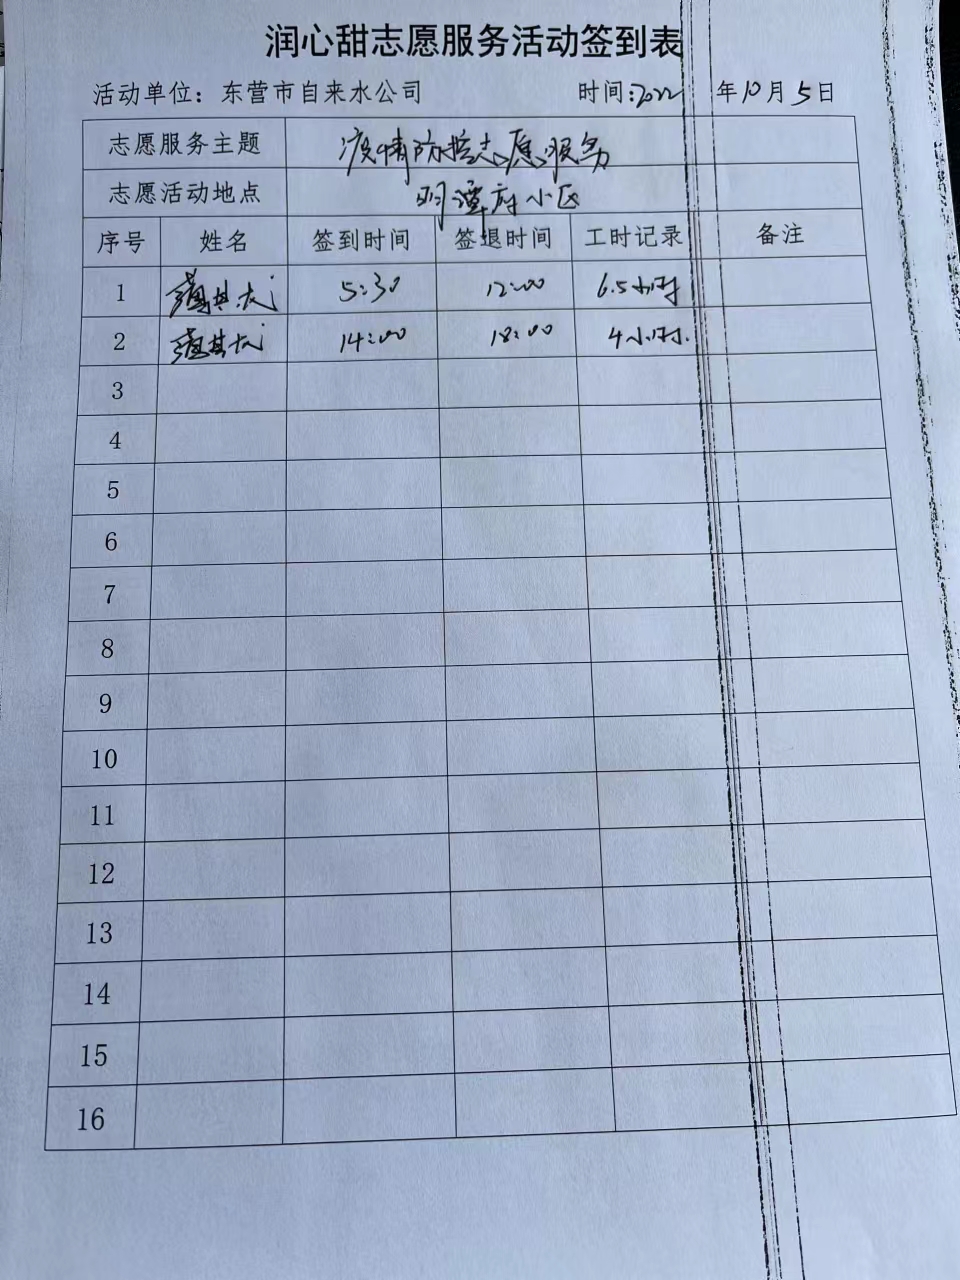 润心甜志愿服务活动签到表
活动单位：东营市自来水公司 时间：2022年10月5日
志愿服务主题 疫情防控志愿服务
志愿活动地点 明潭府小区
序号 姓名 签到时间 签退时间 工时记录 备注
1 5:30 12:00 6.5小时
2 14:00 18:00 4小时.
3
4
5
6
7
8
9
10
11
12
13
14
15
16